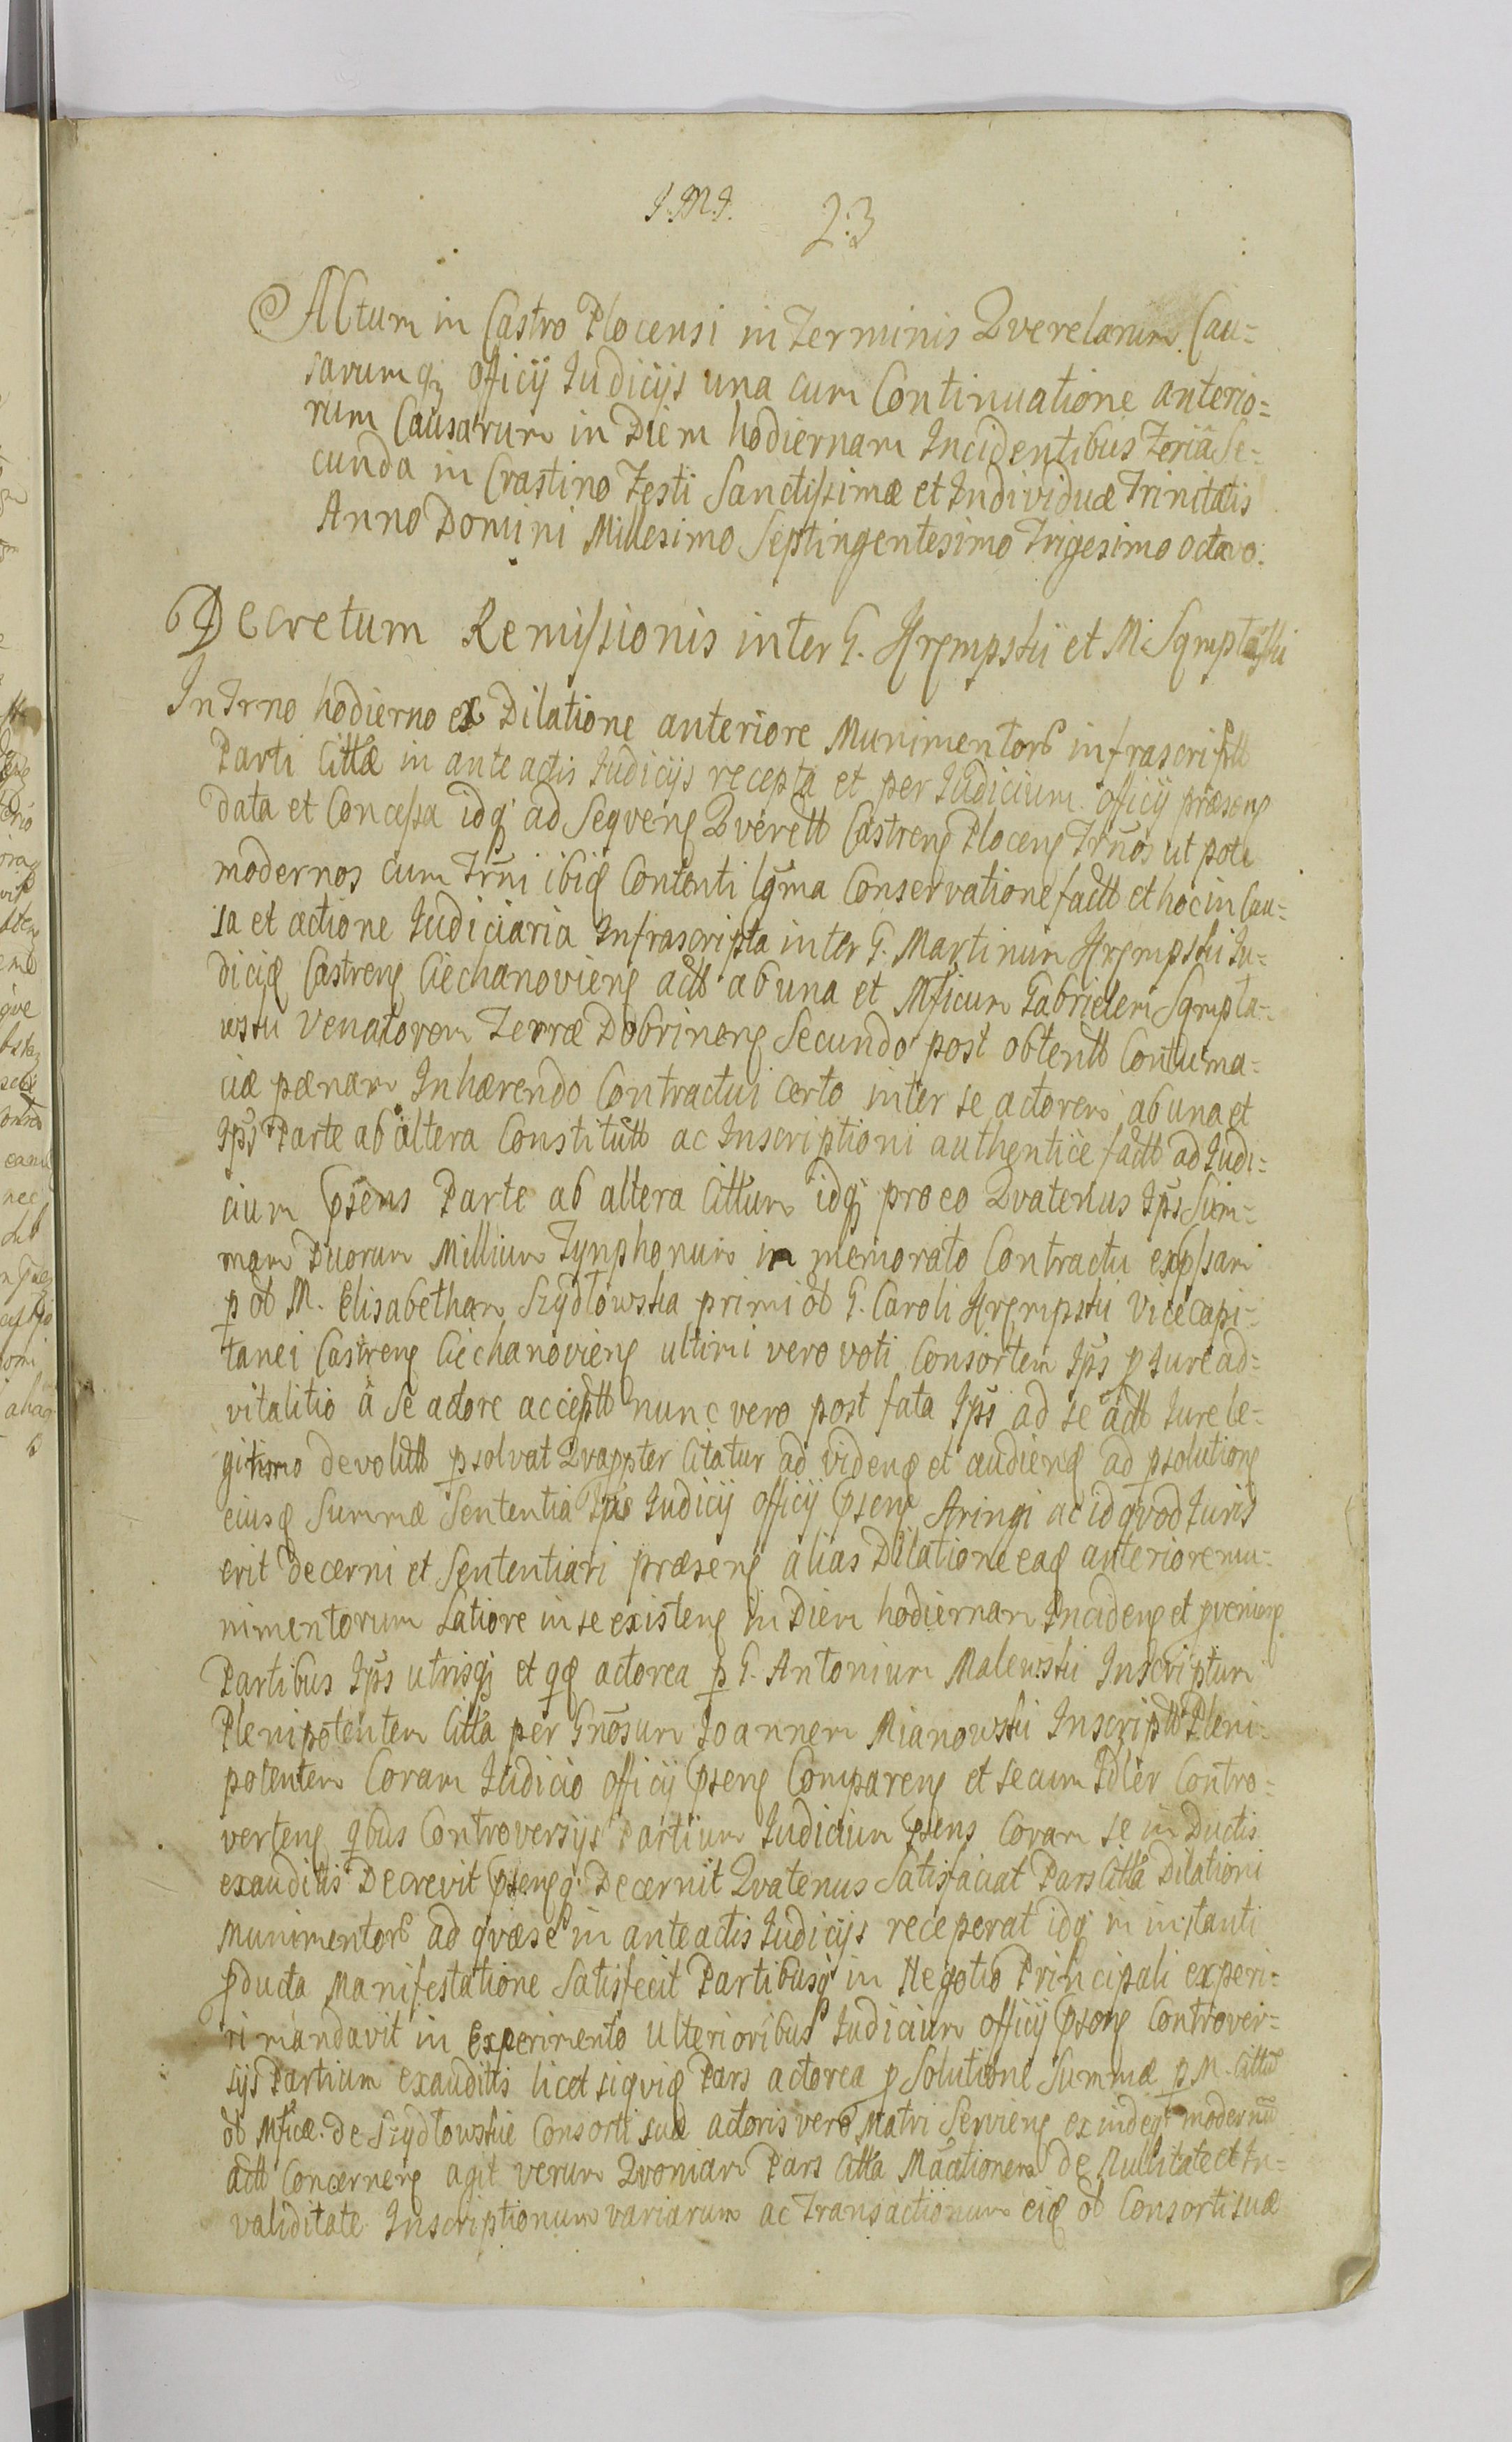 J.M.J. 23
Actum in Castro Plocensi in Terminis Qverelarum Cau=
sarumq; officij Judicijs una cum Continuatione anterio=
rum Causarum in Diem hodiernam Incidentibus Feriâ Se=
cunda in Crastino Festi Sanctissimæ et Individuæ Trinitatis
Anno Domini Millesimo Septingentesimo Trigesimo octavo.
6 Decretum Remissionis inter G. Krempski et M. Sqmptawski
In Trno hodierno ex Dilatione anteriore Munimentor infrascriptt
Parti Cittæ in ante actis Judicijs recepta et per Judicium officij præsens
data et Concessa idq; ad Seqvens Qverett Castrens Plocens Trnos ut pote
modernos cum Trni ibid Contenti lgma Conservatione factt et hoc in Cau=
sa et actione Judiciaria Infrascripta inter G. Martinum Krempski Ju=
dicid Castrens Ciechanoviens actt ab una et Mficum Gabrielem Sqmpta=
wski Venatorem Terræ Dobrinens Secundo post obtentt Contuma=
ciæ pænam Inhærendo Contractui certo inter se actorem ab una et
Ips Parte ab altera Constitutt ac Inscriptioni authentice factt ad Judi=
cium psens Parte ab altera Cittum idq; pro eo Qvatenus Ips Sum=
mam Duorum Millium Tynphonum in memorato Contractu expssam
p ob M. Elisabetham Szydłowska primi ob G. Caroli Krempski Vicecapi=
tanei Castrens Ciechanoviens ultimi vero voti Consortem Ips p Jure ad=
vitalitio â Se actore acceptt nunc vero post fata Ips ad se actt Jure le=
gitimo devolutt psolvat Qvappter Citatur ad vidend et audiend ad psolutions
eiusd Summæ Sententia Ips Judicij officij psens stringi ac id qvod Juris
erit Decerni et Sententiari præsens alias Dilatione ead anteriore mu=
nimentorum Latiore in se existens in Diem hodiernam Incidens et pveniens
Partibus Ips utrisq; et qd actorea p G. Antonium Malewski Inscriptum
Plenipotentem Citta per Gnosum Joannem Mianowski Inscriptt Pleni=
potentem Coram Judicio officij psens Comparens et secum Idler Contro=
vertens qbus Controversijs Partium Judicium psens Coram se inductis
exauditis Decrevit psensq; Decernit Qvatenus Satisfaciat Pars Citta Dilationi
Munimentor ad qvæ se in anteactis Judicijs receperat idq; in instanti
pducta Manifestatione Satisfecit Partibusq; in Negotio Principali experi=
ri mandavit in Experimento ulterioribus Judicium officij psens Controver=
sijs Partium exauditis licet siqvid Pars actorea p Solutione Summæ p M. Cittu
ob Mficæ de Szydłowskie Consorti suæ actoris vero Matri Serviens exindeq; modernu
actt Concernens agit verum Qvoniam Pars Citta Maationem de Nullitate et In=
validitate Inscriptionum variarum ac Transactionum eid ob Consorti suæ